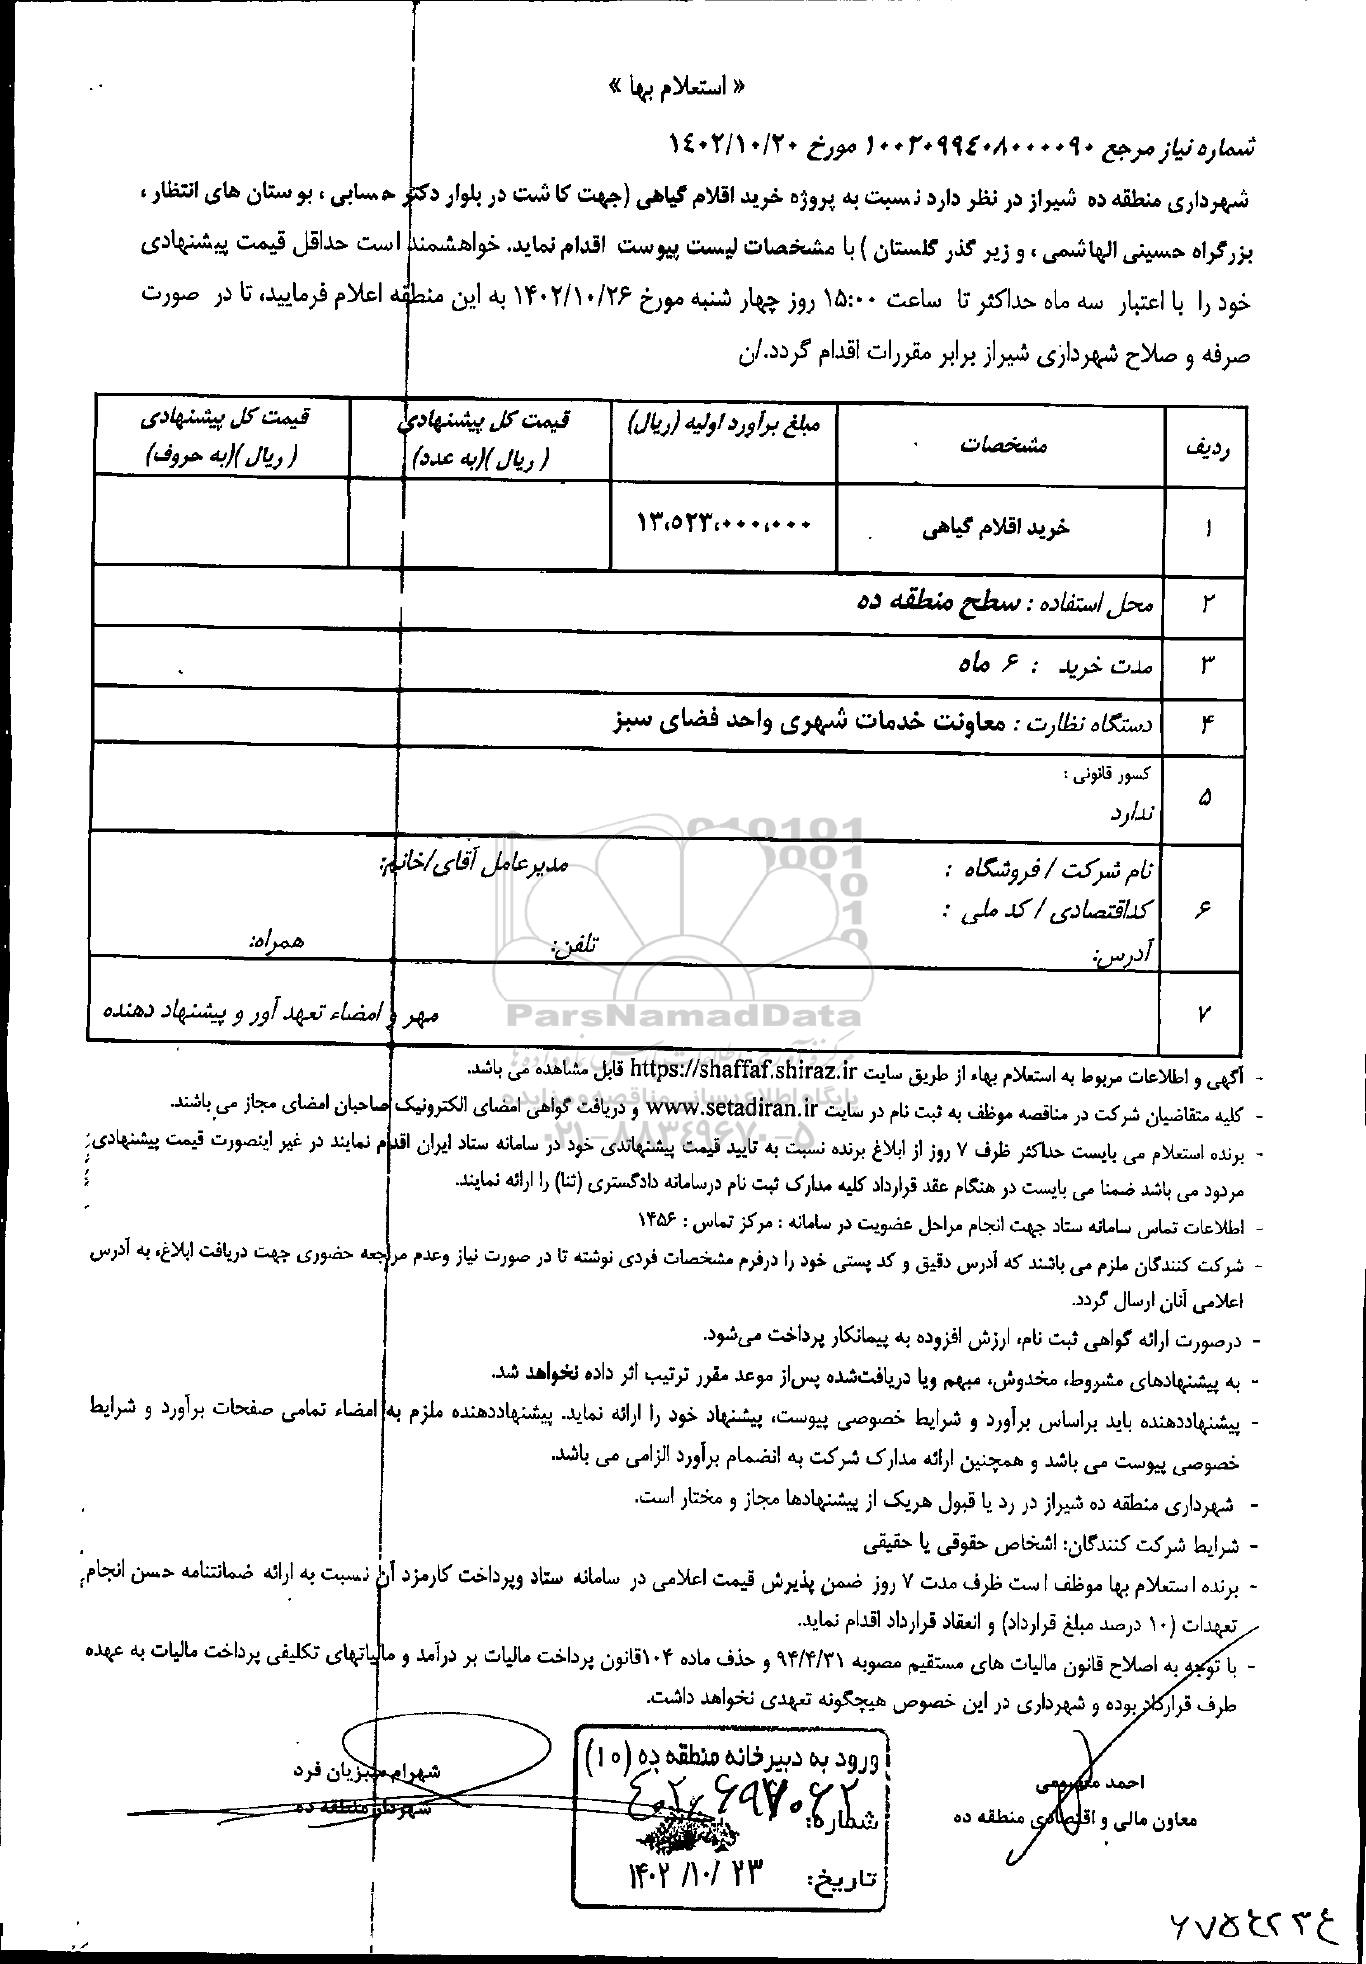 « استعلام بها »
شماره نیاز مرجع ۱۰۰۲۰۹۹۴۰۸۰۰۰۰۹۰ مورخ ۱۴۰۲/۱۰/۲۰
شهرداری منطقه ده شیراز در نظر دارد نسبت به پروژه خرید اقلام گیاهی (جهت کاشت در بلوار دکتر حسابی ، بوستان های انتظار ،
بزرگراه حسینی الهاشمی ، و زیر گذر گلستان ) با مشخصات لیست پیوست اقدام نماید. خواهشمند است حداقل قیمت پیشنهادی
خود را با اعتبار سه ماه حداکثر تا ساعت ۱۵:۰۰ روز چهار شنبه مورخ ۱۴۰۲/۱۰/۲۶ به این منطقه اعلام فرمایید، تا در صورت
صرفه و صلاح شهرداری شیراز برابر مقررات اقدام گردد./ن
ردیف مشخصات مبلغ برآورد اولیه (ریال) قیمت کل پیشنهادی (ریال)(به عدد) قیمت کل پیشنهادی (ریال)(به حروف)
۱ خرید اقلام گیاهی ۱۳،۵۲۳،۰۰۰،۰۰۰
۲ محل استفاده : سطح منطقه ده
۳ مدت خرید : ۶ ماه
۴ دستگاه نظارت : معاونت خدمات شهری واحد فضای سبز
۵ کسور قانونی :
ندارد
۶ نام شرکت / فروشگاه : مدیرعامل آقای/خانم:
کداقتصادی / کد ملی :
آدرس: تلفن: همراه:
۷ مهر و امضاء تعهد آور و پیشنهاد دهنده
ParsNamadData
پایگاه اطلاع رسانی مناقصه و مزایده
۰۲۱-۸۸۳۴۹۶۷۰-۵
- آگهی و اطلاعات مربوط به استعلام بهاء از طریق سایت https://shaffaf.shiraz.ir قابل مشاهده می باشد.
- کلیه متقاضیان شرکت در مناقصه موظف به ثبت نام در سایت www.setadiran.ir و دریافت گواهی امضای الکترونیک صاحبان امضای مجاز می باشند.
- برنده استعلام می بایست حداکثر ظرف ۷ روز از ابلاغ برنده نسبت به تایید قیمت پیشنهادی خود در سامانه ستاد ایران اقدام نمایند در غیر اینصورت قیمت پیشنهادی
مردود می باشد ضمنا می بایست در هنگام عقد قرارداد کلیه مدارک ثبت نام درسامانه دادگستری (ثنا) را ارائه نمایند.
- اطلاعات تماس سامانه ستاد جهت انجام مراحل عضویت در سامانه : مرکز تماس : ۱۴۵۶
- شرکت کنندگان ملزم می باشند که آدرس دقیق و کد پستی خود را درفرم مشخصات فردی نوشته تا در صورت نیاز وعدم مراجعه حضوری جهت دریافت ابلاغ، به آدرس
اعلامی آنان ارسال گردد.
- درصورت ارائه گواهی ثبت نام، ارزش افزوده به پیمانکار پرداخت می‌شود.
- به پیشنهادهای مشروط، مخدوش، مبهم ویا دریافت‌شده پس‌از موعد مقرر ترتیب اثر داده نخواهد شد.
- پیشنهاددهنده باید براساس برآورد و شرایط خصوصی پیوست، پیشنهاد خود را ارائه نماید. پیشنهاددهنده ملزم به امضاء تمامی صفحات برآورد و شرایط
خصوصی پیوست می باشد و همچنین ارائه مدارک شرکت به انضمام برآورد الزامی می باشد.
- شهرداری منطقه ده شیراز در رد یا قبول هریک از پیشنهادها مجاز و مختار است.
- شرایط شرکت کنندگان: اشخاص حقوقی یا حقیقی
- برنده استعلام بها موظف است ظرف مدت ۷ روز ضمن پذیرش قیمت اعلامی در سامانه ستاد وپرداخت کارمزد آن نسبت به ارائه ضمانتنامه حسن انجام
تعهدات (۱۰ درصد مبلغ قرارداد) و انعقاد قرارداد اقدام نماید.
- با توجه به اصلاح قانون مالیات های مستقیم مصوبه ۹۴/۴/۳۱ و حذف ماده ۱۰۴قانون پرداخت مالیات بر درآمد و مالیاتهای تکلیفی پرداخت مالیات به عهده
طرف قرارداد بوده و شهرداری در این خصوص هیچگونه تعهدی نخواهد داشت.
احمد
معاون مالی و اقتصادی منطقه ده
ورود به دبیرخانه منطقه ده (۱۰)
شماره: ۴۰۲۰۶۹۷۰۶۲
تاریخ: ۱۴۰۲/۱۰/۲۳
شهرام سبزیان فرد
شهردار منطقه ده
۶۷۵۴۲۳۴